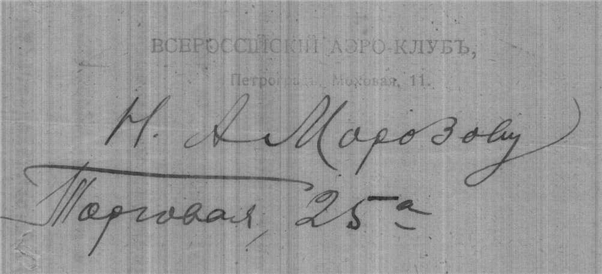 ВСЕРОССІЙСКІЙ АЭРО-КЛУБЪ,
Петроградъ, Моховая, 11.
Н. А Морозову
Торговая, 25а